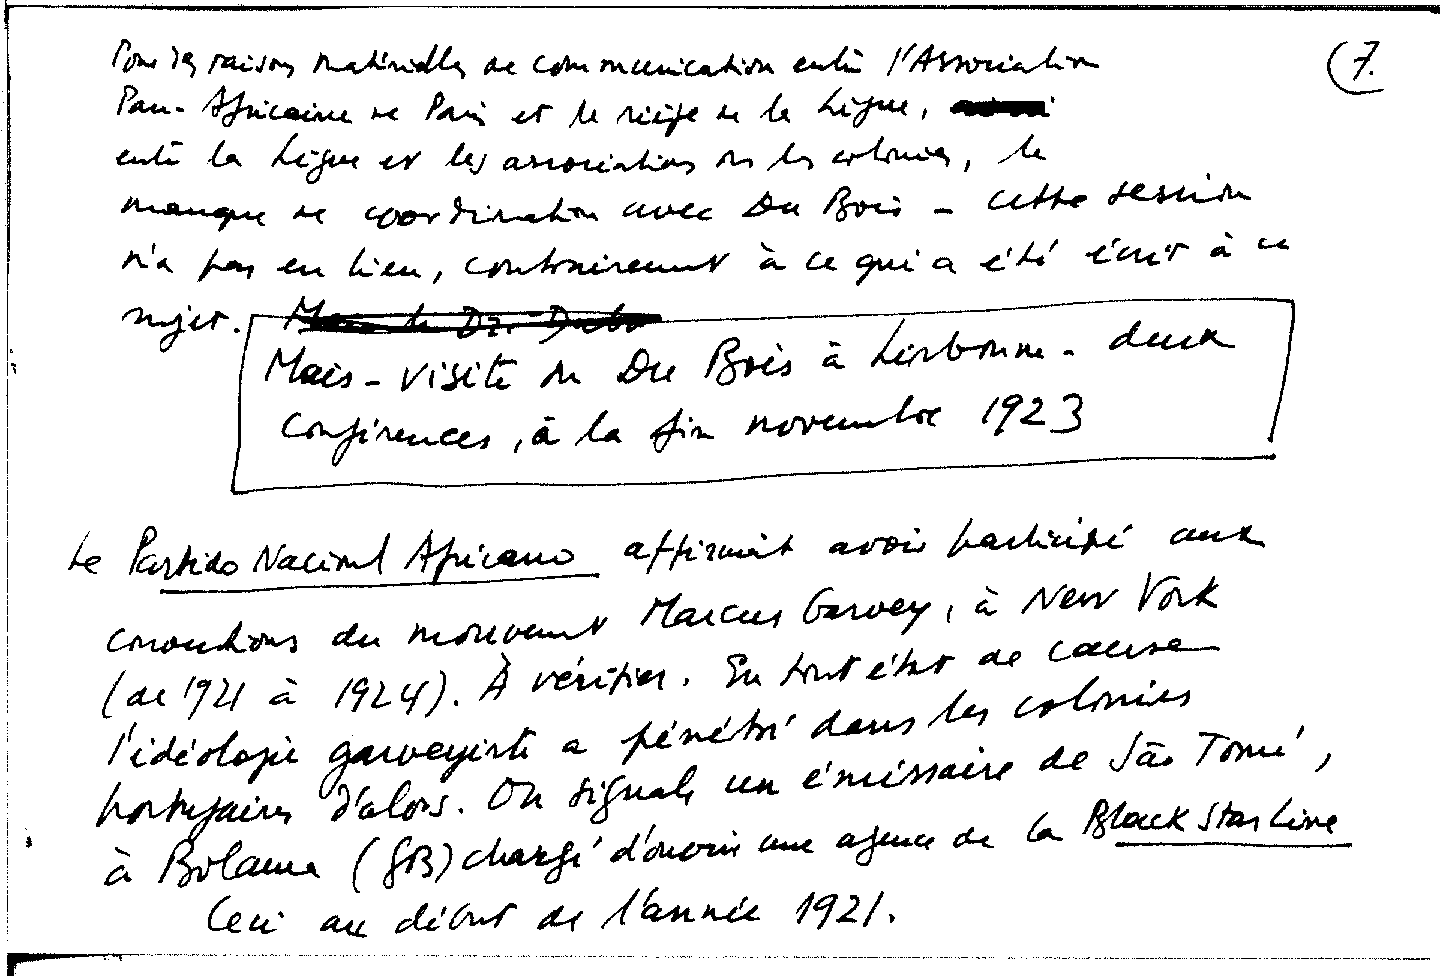 7.
Pour des raisons matérielles de communication entre l'Association
Pan-Africaine de Paris et le siège de la Ligue,
entre la Ligue et les associations des colonies, le
manque de coordination avec Du Bois - cette session
n'a pas eu lieu, contrairement à ce qui a été écrit à ce
sujet.
Mais - visite de Du Bois à Lisbonne - deux
conférences, à la fin novembre 1923
Le Partido Nacional Africano affirmait avoir participé aux
conventions du mouvement Marcus Garvey, à New York
(de 1921 à 1924). À vérifier. En tout état de cause
l'idéologie garveyiste a pénétré dans les colonies
portugaises d'alors. On signale un émissaire de São Tomé,
à Bolama (GB) chargé d'ouvrir une agence de la Black Star Line
Ceci au début de l'année 1921.